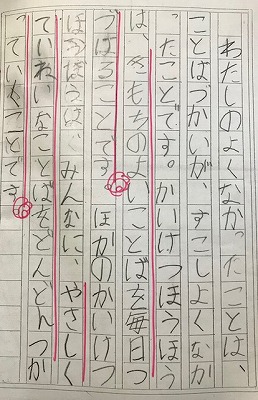 わたしのよくなかったことは、
ことばづかいが、すこしよくなか
ったことです。かいけつほうほう
は、きもちのよいことばを毎日つ
づけることです。ほかのかいけつ
ほうほうは、みんなに、やさしく
ていねいなことばをどんどんつか
っていくことです。